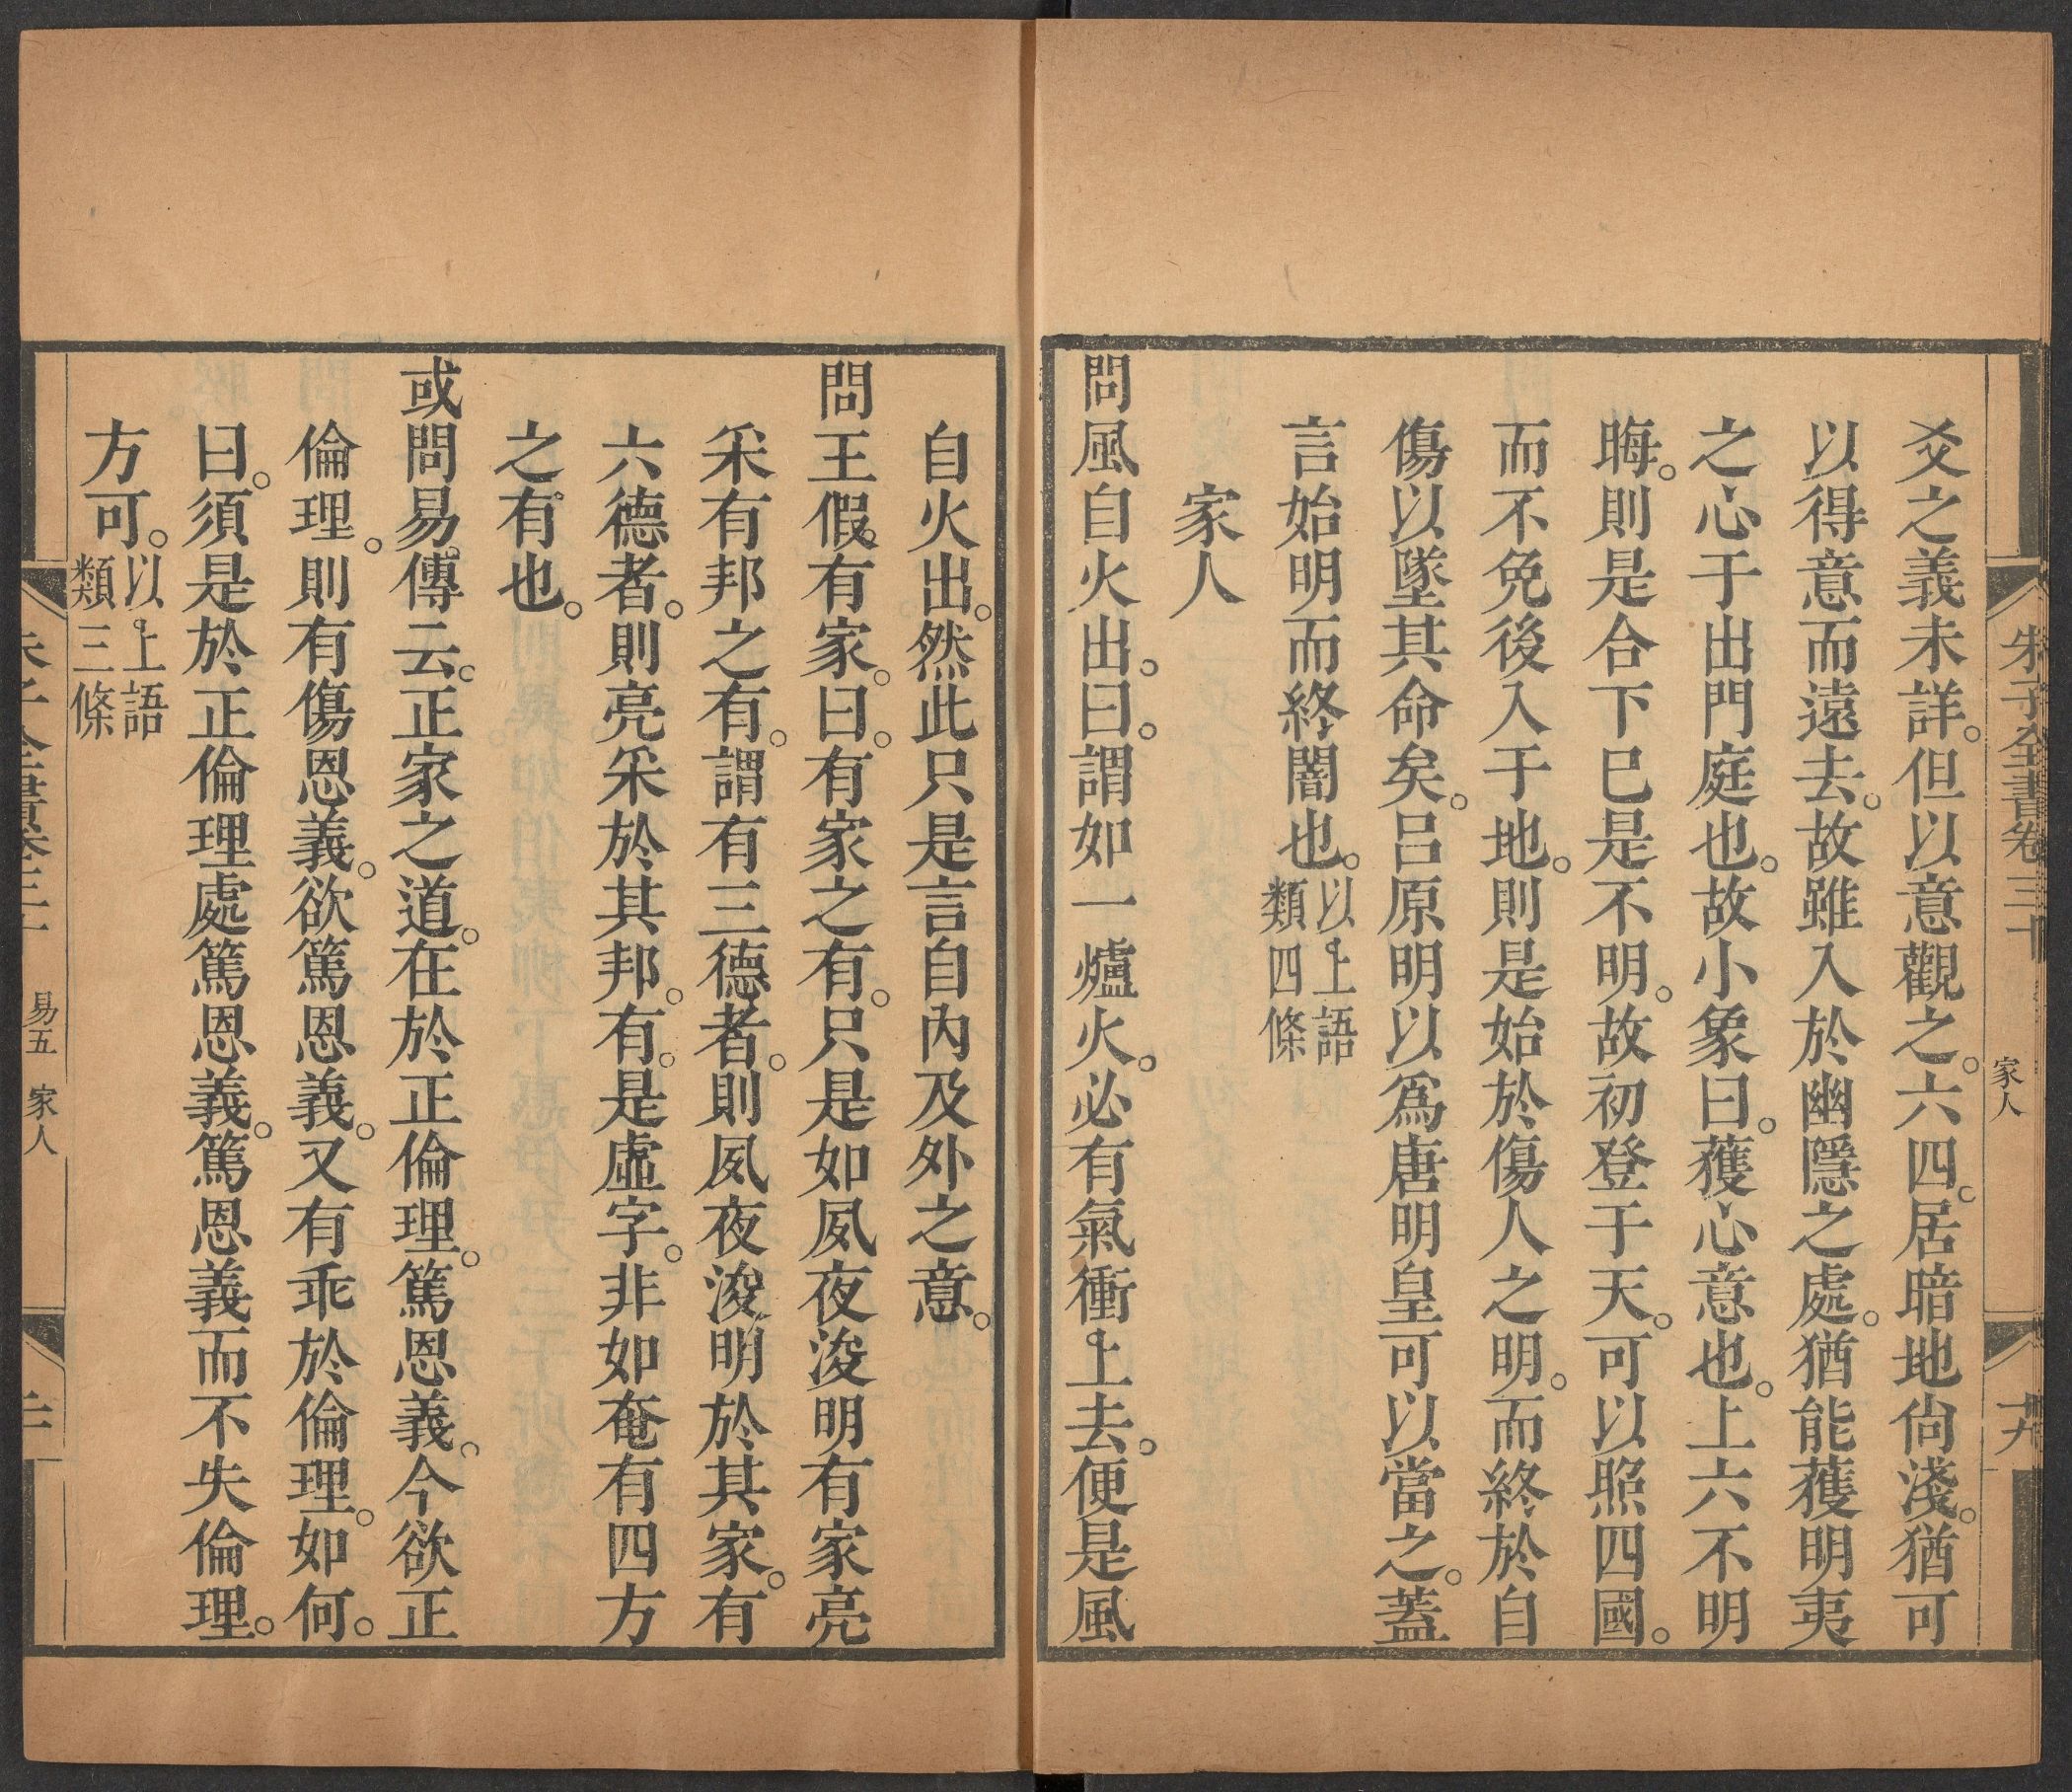 朱子全書卷三十
家人
十九
爻之義未詳。但以意觀之。六四。居暗地尙淺。猶可
以得意而遠去。故雖入於幽隱之處。猶能獲明夷
之心于出門庭也。故小象曰。獲心意也。上六不明
晦。則是合下已是不明。故初登于天。可以照四國。
而不免後入于地。則是始於傷人之明。而終於自
傷以墜其命矣。呂原明以爲唐明皇可以當之。蓋
言始明而終闇也。以上語
類四條
家人
問風自火出。曰。謂如一爐火。必有氣衝上去。便是風
自火出。然此只是言自內及外之意。
問王假。有家。曰。有家之有。只是如夙夜浚明有家亮
采有邦之有。謂有三德者。則夙夜浚明於其家。有
六德者。則亮采於其邦。有。是虛字。非如奄有四方
之有也。
或問易。傳云。正家之道。在於正倫理。篤恩義。今欲正
倫理。則有傷恩義。欲篤恩義。又有乖於倫理。如何。
曰。須是於正倫理處篤恩義。篤恩義而不失倫理。
方可。以上語
類三條
易五
家人